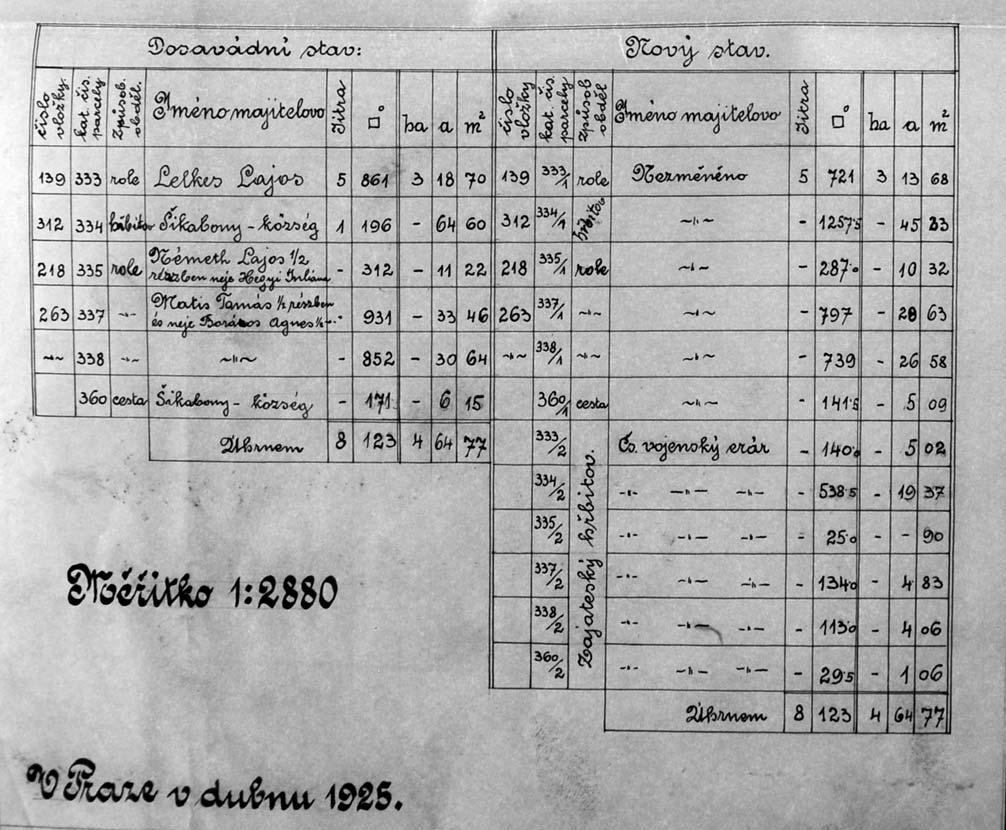 Dosavádní stav: Nový stav.
číslo vložky. kat. čís. parcely způsob. obděl. Jméno majitelovo Jitra □° ha a m² číslo vložky kat. čís. parcely způsob obděl Jméno majitelovo Jitra □° ha a m²
139 333 role Lelkes Lajos 5 861 3 18 70 139 333/1 role Nezměněno 5 721 3 13 68
312 334 hřbitov Šikabony - község 1 196 - 64 60 312 334/1 hřbitov -"- - 1257·5 - 45 23
218 335 role Németh Lajos 1/2 részben neje Hegyi Juliána - 312 - 11 22 218 335/1 role -"- - 287·0 - 10 32
263 337 -"- Matis Tamás ½ részben és neje Agnes ½ -"- 931 - 33 46 263 337/1 -"- -"- - 797 - 28 63
-"- 338 -"- -"- - 852 - 30 64 -"- 338/1 -"- -"- - 739 - 26 58
360 cesta Šikabony - község - 171 - 6 15 360/1 cesta -"- - 141·5 - 5 09
Úhrnem 8 123 4 64 77 333/2 Čs. vojenský erár - 140·0 - 5 02
334/2 -"- -"- -"- - 538·5 - 19 37
335/2 -"- -"- -"- - 25·0 - - 90
337/2 -"- -"- -"- - 134·0 - 4 83
338/2 -"- -"- -"- - 113·0 - 4 06
360/2 -"- -"- -"- - 29·5 - 1 06
Zajatecký hřbitov.
Úhrnem 8 123 4 64 77
Měřítko 1:2880
V Praze v dubnu 1925.